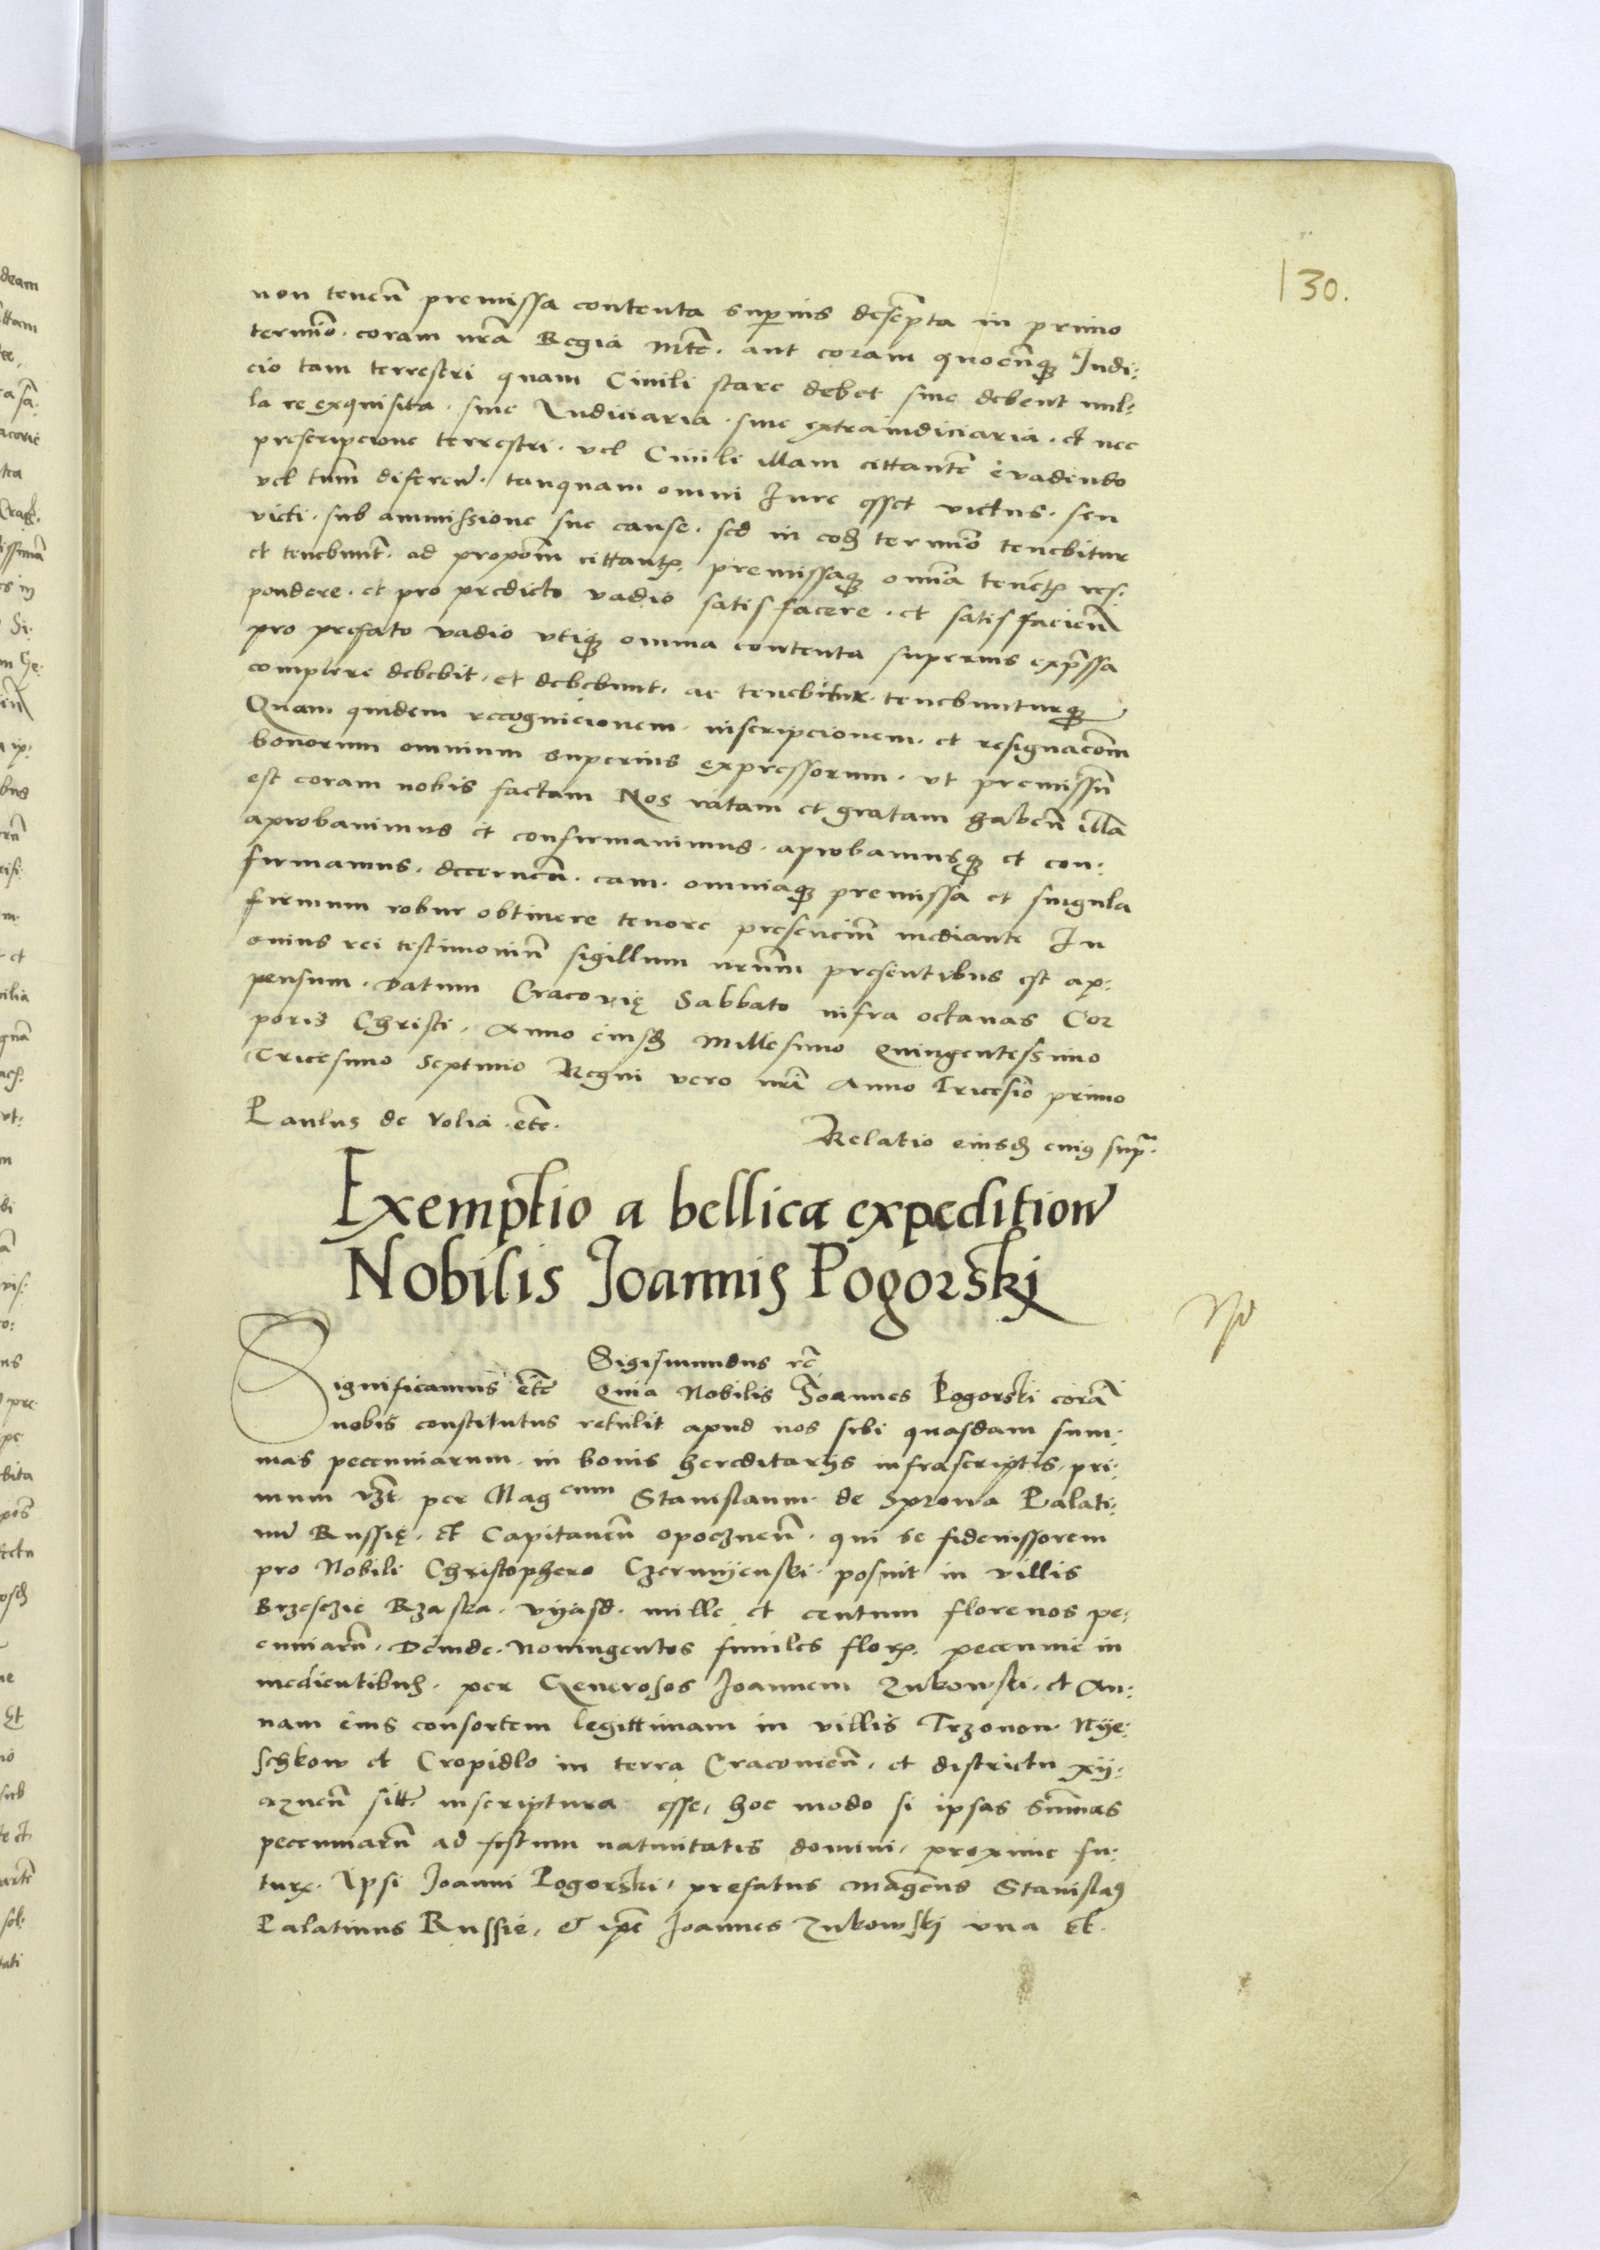 130.
non tenen̄ premissa contenta superius descripta in primo
termīo. coram nrā Regia Mte. aut coram quocunq̨ Judi:
cio tam terrestri quam Ciuili stare debet siue debent nul:
la re exquisita. siue Iudiciaria. siue extraiudiciaria. et nec
prescripcione terrestri. vel Ciuili illam cittantē euadendo
vel tum̄ diferen̄. tanquam omni Jure esset victus. seu
victi. sub ammissione sue cause. sed in eod̨ termīo tenebitur
et tenebunt̄. ad propōm cittant̨. premissaq̨ omīa tenet̨ res:
pondere. et pro predicto vadio satisfacere. et satisfacien̄
pro prefato vadio vtiq̨ omnia contenta superius exp̄ssa
complere debebit. et debebunt. ac tenebitur. tenebunturq̨
Quam quidem recognicionem. inscripcionem. et resignacōm
bonorum omnium superius expressorum. vt premissū
est coram nobis factam Nos ratam et gratam haben̄ illā
aprobauimus et confirmauimus. aprobamusq̨ et con:
firmamus. decernen̄. eam. omniaq̨ premissa et singula
firmum robur obtinere tenore presenciū mediante In
cuius rei testimoniū sigillum nrūm presentibus est ap:
pensum. Datum Cracouię Sabbato infra octauas Cor
poris Christi. Anno eiusd̨ Millesimo Quingentessimo
Tricesimo Septimo Regni vero nrī Anno Tricesīo primo
Paulus de Volia. etc̄.
Relatio eiusd̨ cuiꝰ sup̄.
Exemptio a bellica expedition̄
Nobilis Joannis Pogorskj
Sigismundus rc̄
Significamus etc̄ Quia Nobilis Joannes Pogorski corā
nobis constitutus retulit apud nos sibi quasdam sum:
mas pecuniarum. in bonis hereditarijs infrascriptis, pri:
mum vz̄t per Magcum Stanislaum. de Sprowa Palati:
nū Russię. et Capitaneū opocznen̄. qui se fideiussorem
pro Nobili Christophero Czermyenski. posuit in villis
Brzesczie Rzaska. vyasd. mille et centum florenos pe:
cuniarū. Deinde. Noningentos similes flor̨. pecunie in
medientibus. per Generosos Joannem Zukowski. et An:
nam eius consortem legittimam in villis Trzonow Nye:
schkow et Cropidlo in terra Cracouien̄. et districtu xy:
aznen̄ sitt̄. inscriptura esse, hoc modo si ipsas sum̄as
pecuniarū ad festum natiuitatis domini, proxime fu:
tur̨. Ipsi Joanni Pogorski, prefatus magcūs Stanislaꝰ
Palatinus Russie, & ip̄e Joannes Zukowskj vna et.